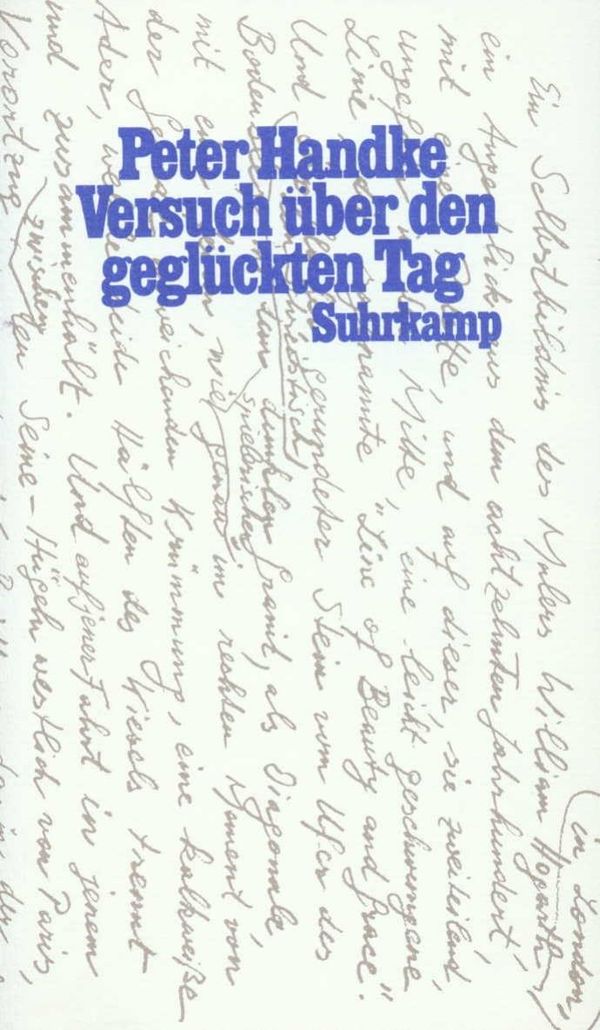 Peter Handke
Versuch über den
geglückten Tag
Suhrkamp
Ein Selbstbildnis des Malers William Hogarth, in London,
ein Augenblick aus dem achtzehnten Jahrhundert,
mit einer Palette, und auf dieser, sie zweiteilend,
ungefähr in der Mitte, eine leicht geschwungene
Linie, die sogenannte „Line of Beauty and Grace“.
Und gerundeter Stein vom Ufer des
Bodensees, dunklen Granit, als Diagonale,
mit einer spielerischen, wie genau im rechten Moment von
der Geraden abweichenden Krümmung, eine kalkweiße
Ader, welche beide Hälften des Kiesels trennt
und zusammenhält. Und auf jener Fahrt in jenem
Vorortzug zwischen den Seine-Hügeln westlich von Paris,